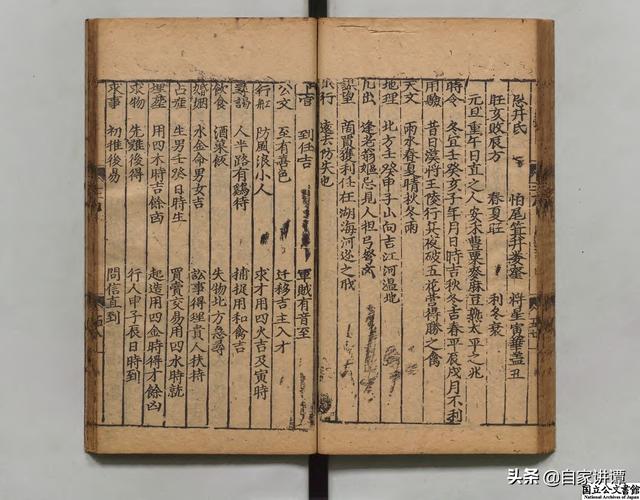 尅井氏 怕尾箕井婁蜜 將星寅華蓋丑
旺亥敗辰方 春夏旺 利冬衰
元旦重午日直之人安禾曹粟麥麻豆熟太平之兆
時令 冬宜壬癸亥子年月日時吉秋冬吉春平辰戌月不利
用驗 昔日漢將王陵行兵夜破五花營得勝之禽
天文 雨水春夏晴秋冬雨
地理 北方壬癸申子山向吉江河溫地
凡出 逢老翁嫗忌見人担弓弩
謀望 商賈獲利任在湖海河逃之戒
旅行 遠去防失也
到任吉 軍賊有音至
公文 至有喜色 迁移吉主入才
行舡 防風浪小人 求才用四火吉及寅時
尋謁 人半路有鷄待 捕捉用和禽吉
飲食 酒菜飯 失物北方急尋
婚姻 水金命男女吉 訟事得理貴人扶持
占産 生男壬癸日時生 買賣交易用四水時就
埋塟 用四木時吉餘凶 起造用四金時得才餘凶
求物 先难後得 行人申子辰日時到
求事 初推後易 問信直到
头条 @自家讲谭
国立公文書館
National Archives of Japan